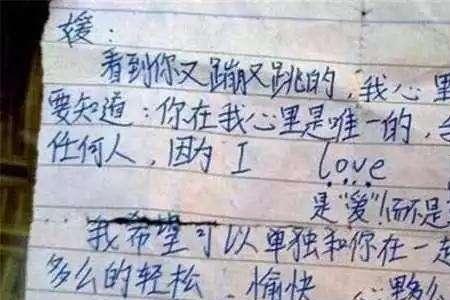 媛:
看到你又蹦又跳的,我心里
要知道:你在我心里是唯一的,
任何人,因为 I love
是"爱"!而不是
我希望可以单独和你在一起
多么的轻松,愉快